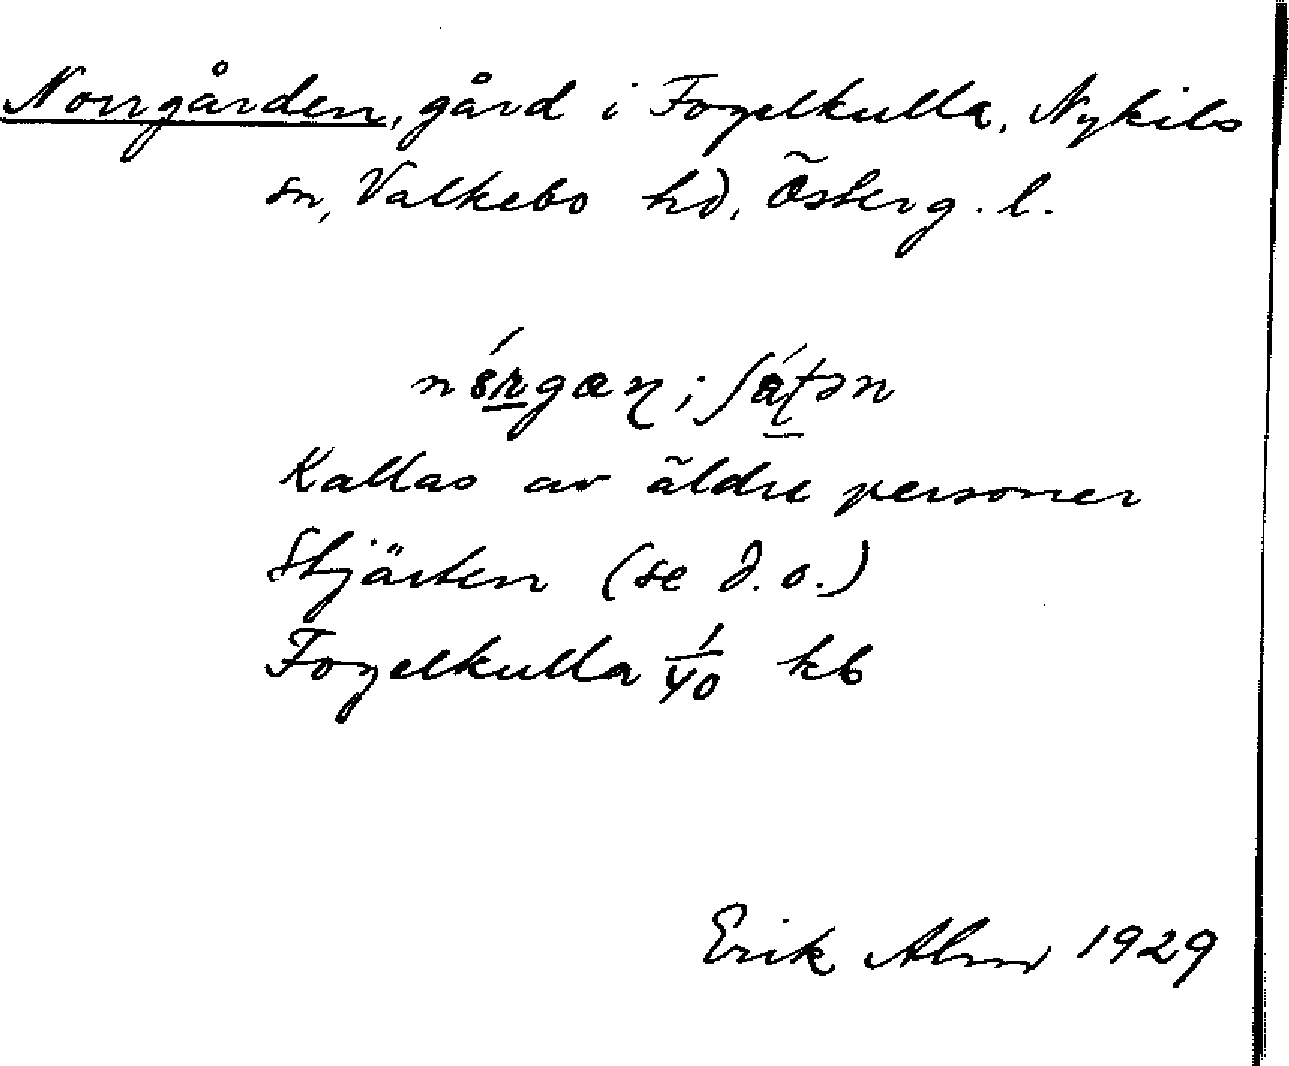 Norrgården, gård i Fogelkulla, Nykils
sn, Valkebo hd, Österg. l.
Kallas av äldre personer
Stjärten (se d. o.)
Fogelkulla 1/40 kb
Erik Alm 1929